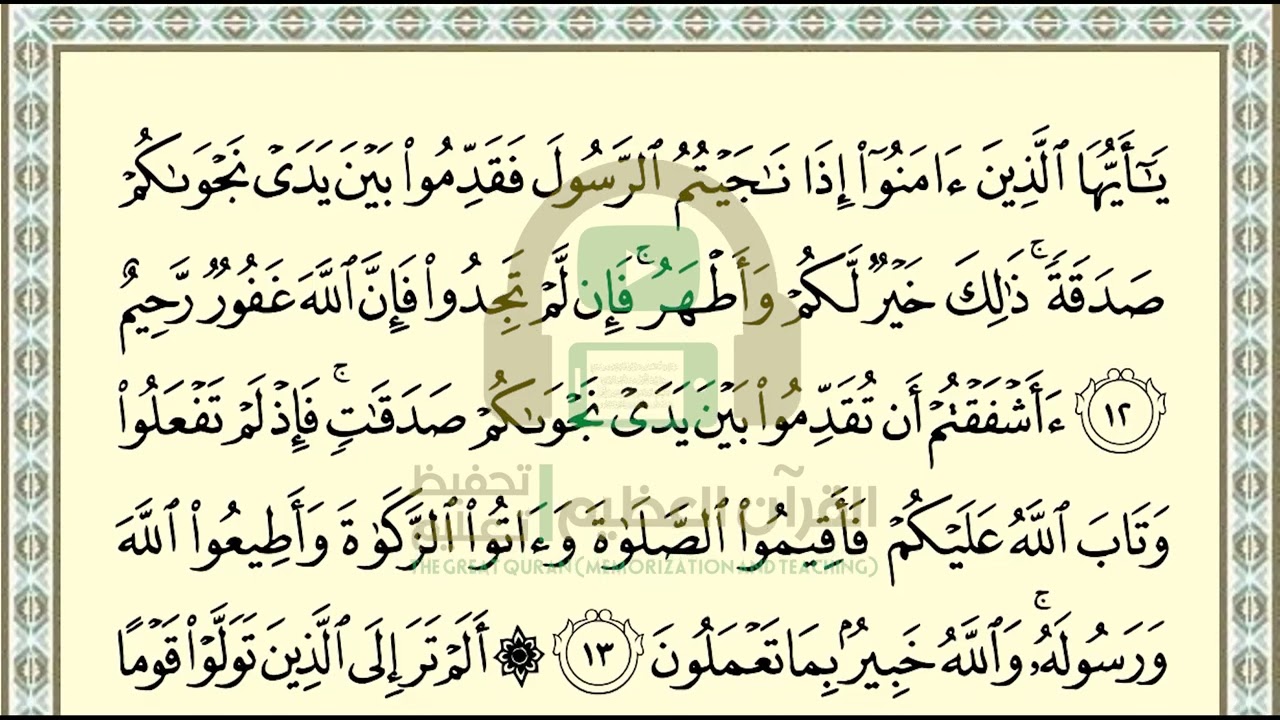 يَـٰٓأَيُّهَا ٱلَّذِينَ ءَامَنُوٓا۟ إِذَا نَـٰجَيْتُمُ ٱلرَّسُولَ فَقَدِّمُوا۟ بَيْنَ يَدَىْ نَجْوَىٰكُمْ
صَدَقَةً ۚ ذَٰلِكَ خَيْرٌ لَّكُمْ وَأَطْهَرُ ۚ فَإِن لَّمْ تَجِدُوا۟ فَإِنَّ ٱللَّهَ غَفُورٌ رَّحِيمٌ
١٢ ءَأَشْفَقْتُمْ أَن تُقَدِّمُوا۟ بَيْنَ يَدَىْ نَجْوَىٰكُمْ صَدَقَـٰتٍ ۚ فَإِذْ لَمْ تَفْعَلُوا۟
وَتَابَ ٱللَّهُ عَلَيْكُمْ فَأَقِيمُوا۟ ٱلصَّلَوٰةَ وَءَاتُوا۟ ٱلزَّكَوٰةَ وَأَطِيعُوا۟ ٱللَّهَ
وَرَسُولَهُۥ ۚ وَٱللَّهُ خَبِيرٌۢ بِمَا تَعْمَلُونَ ١٣ ۞ أَلَمْ تَرَ إِلَى ٱلَّذِينَ تَوَلَّوْا۟ قَوْمًا
القرآن العظيم | تحفيظ وتعليم
THE GREAT QURAN (MEMORIZATION AND TEACHING)